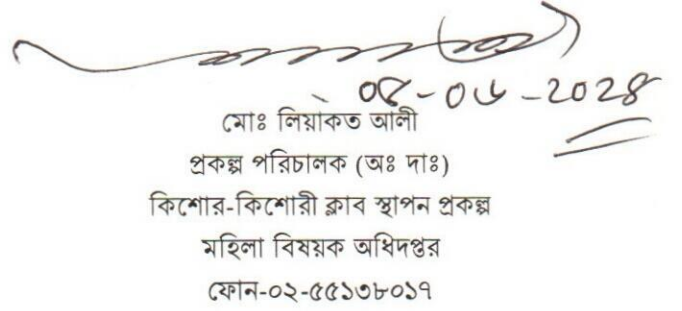 ০৫-০৬-২০২৪
মোঃ লিয়াকত আলী
প্রকল্প পরিচালক (অঃ দাঃ)
কিশোর-কিশোরী ক্লাব স্থাপন প্রকল্প
মহিলা বিষয়ক অধিদপ্তর
ফোন-০২-৫৫১৩৮০১৭